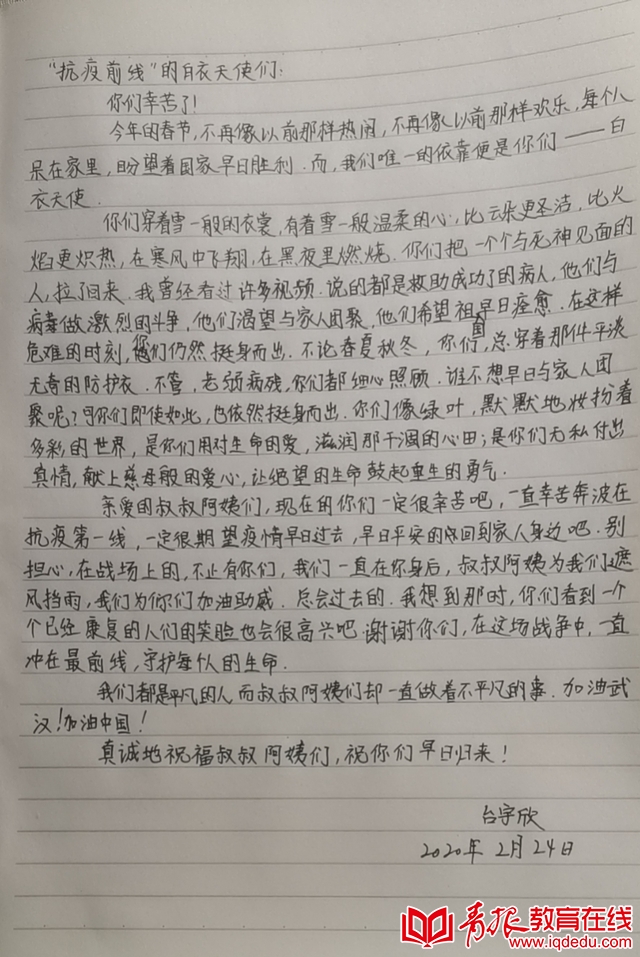 “抗疫前线”的白衣天使们:
你们幸苦了!
今年的春节,不再像以前那样热闹,不再像以前那样欢乐,每个人
呆在家里,盼望着国家早日胜利.而,我们唯一的依靠便是你们——白
衣天使.
你们穿着雪一般的衣裳,有着雪一般温柔的心,比云朵更圣洁,比火
焰更炽热,在寒风中飞翔,在黑夜里燃烧.你们把一个个与死神见面的
人,拉了回来.我曾经看过许多视频.说的都是救助成功了的病人,他们与
病毒做激烈的斗争,他们渴望与家人团聚,他们希望祖国早日痊愈.在这样
危难的时刻,你们仍然挺身而出.不论春夏秋冬,你们,总穿着那件平淡
无奇的防护衣.不管,老弱病残,你们都细心照顾.谁不想早日与家人团
聚呢?可你们即使如此,也依然挺身而出.你们像绿叶,默默地妆扮着
多彩的世界,是你们用对生命的爱,滋润那干涸的心田;是你们无私付出
真情,献上慈母般的爱心,让绝望的生命鼓起重生的勇气.
亲爱的叔叔阿姨们,现在的你们一定很幸苦吧,一直幸苦奔波在
抗疫第一线,一定很期望疫情早日过去,早日平安的回到家人身边吧.别
担心,在战场上的,不止有你们,我们一直在你身后,叔叔阿姨为我们遮
风挡雨,我们为你们加油助威.总会过去的.我想到那时,你们看到一个
个已经康复的人们的笑脸也会很高兴吧.谢谢你们,在这场战争中,一直
冲在最前线,守护每个人的生命.
我们都是平凡的人而叔叔阿姨们却一直做着不平凡的事.加油武
汉!加油中国!
真诚地祝福叔叔阿姨们,祝你们早日归来!
台宇欣
2020年2月24日
青报教育在线
www.iqdedu.com